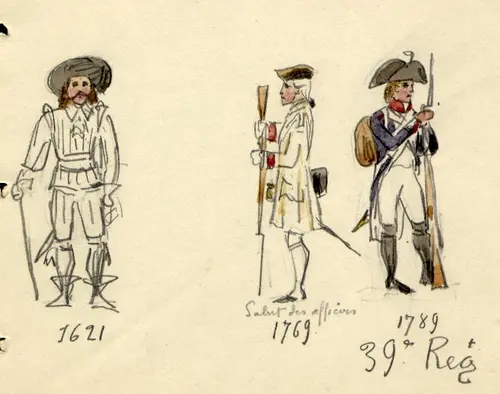 1621
Salut des officiers
1769
1789
39e Reg